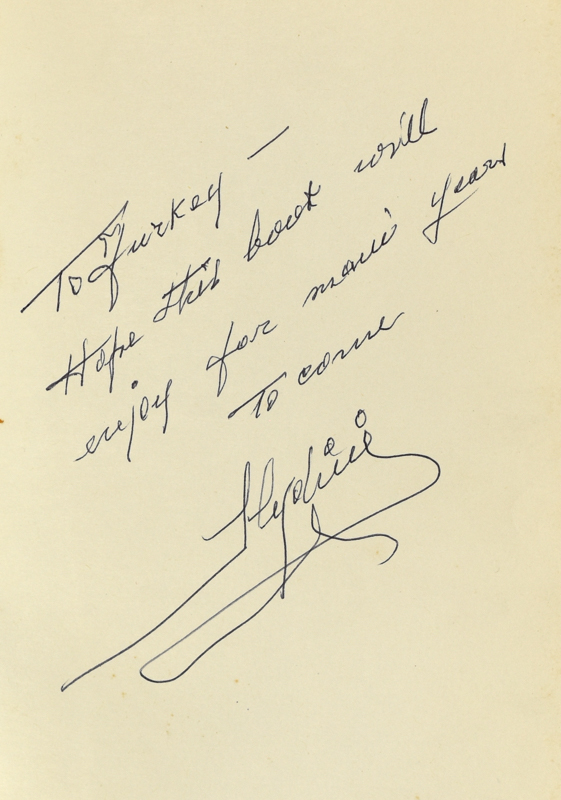 To Turkey —
Hope this book will
enjoy for many years
To come